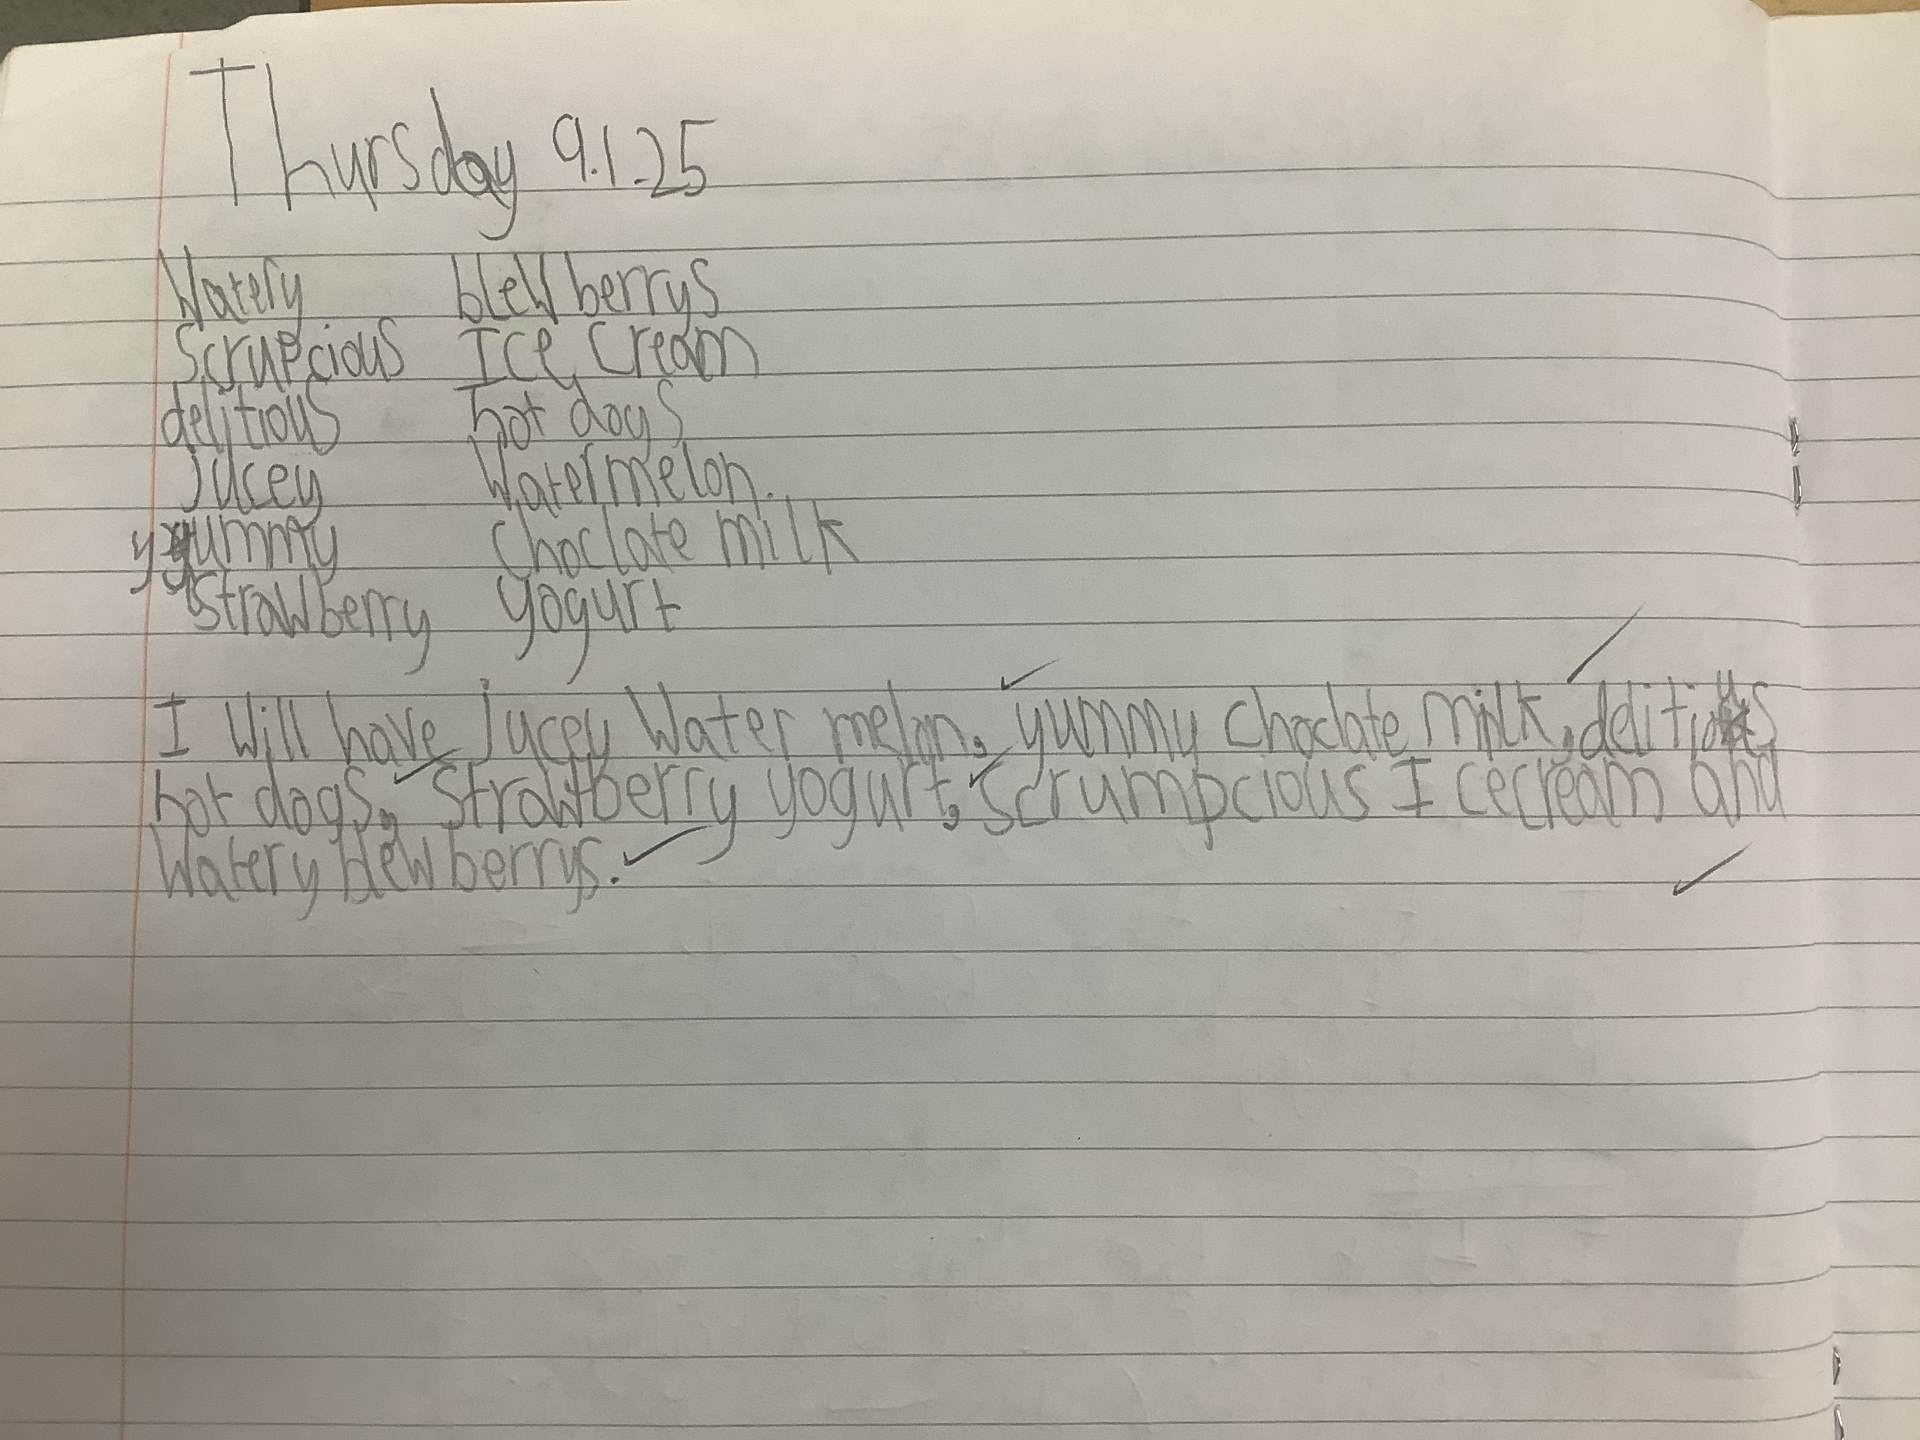 Thursday 9.1.25
Watery blew berrys
Scrupcious Ice Cream
delitious hot dogs
jucey Watermelon.
yummy choclate milk
strawberry yogurt
I Will have jucey Water melon, yummy choclate milk, delitious
hot dogs, strawberry yogurt, scrumpcious Icecream and
Watery blew berrys.